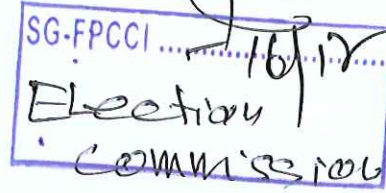 SG-FPCCI ........ 16/12
Election
Commission